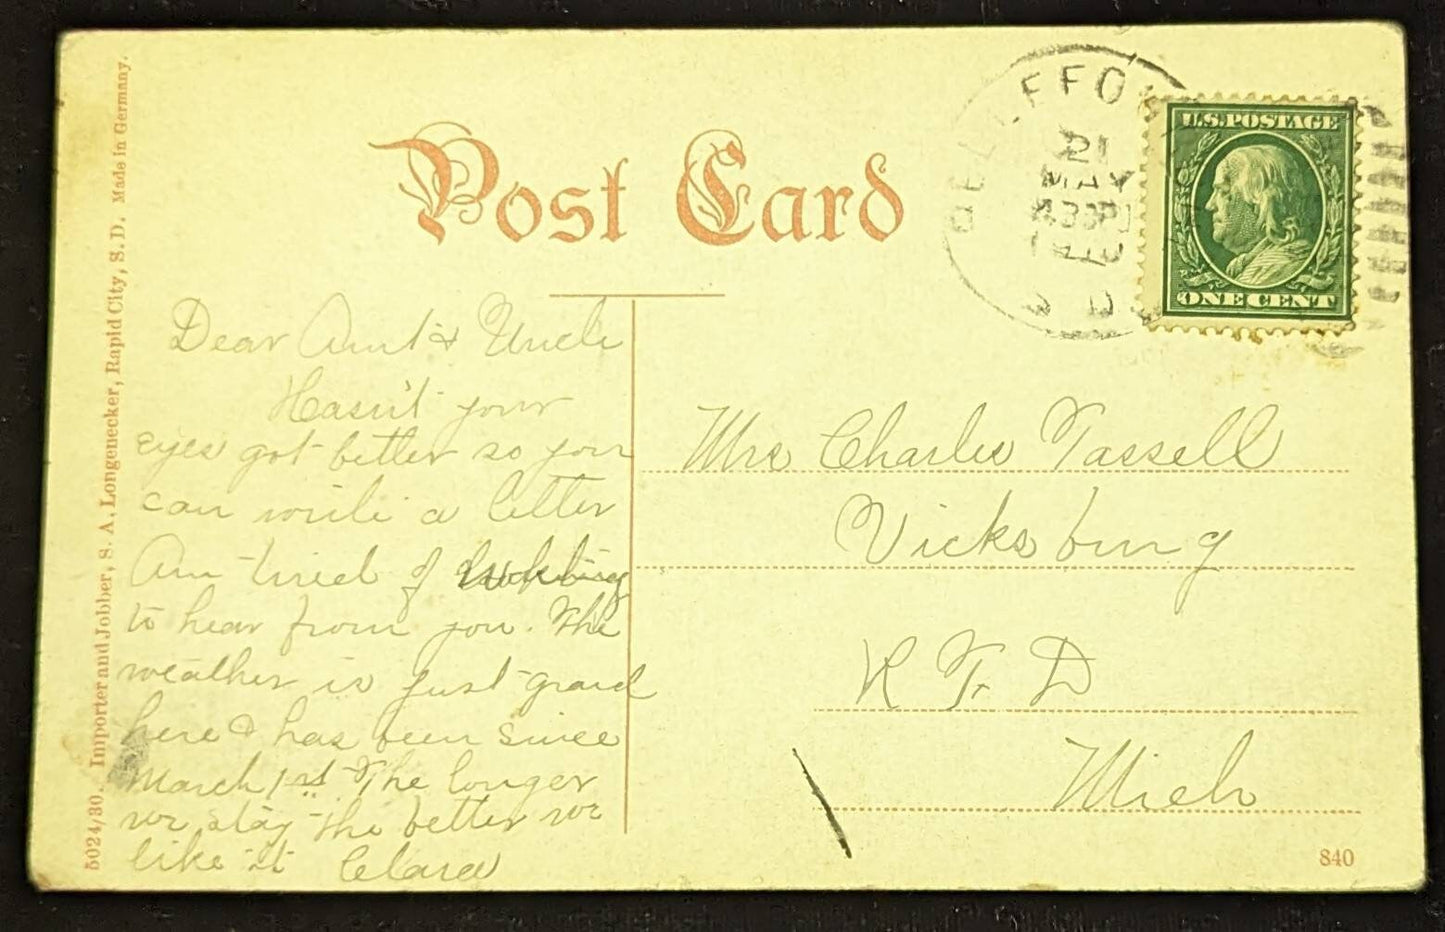 Post Card
U.S. POSTAGE
ONE CENT
21
MAY
Dear Aunt & Uncle
Hasn't your
eyes got better so you
can write a letter
Am tired of looking
to hear from you. The
weather is just grand
here & has been since
March 1st The longer
we stay the better we
like it Clara
Mrs Charles Tassell
Vicksburg
R F D
Mich
840
5024/30. Importer and Jobber, S. A. Longenecker, Rapid City, S. D. Made in Germany.